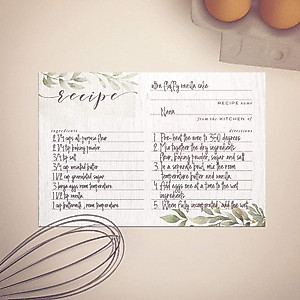 recipe
ultra fluffy vanilla cake
RECIPE name
Nana
from the KITCHEN of
ingredients
2 3/4 cups all-purpose flour
2 1/4 tsp baking powder
3/4 tsp salt
3/4 cup unsalted butter
1 1/2 cup granulated sugar
3 large eggs room temperature
1 1/2 tsp vanilla
1 cup buttermilk, room temp
directions
1. Pre-heat the oven to 350 degrees
2. Mix together the dry ingredients
flour, baking powder, sugar and salt
3. In a separate bowl, mix the room
temperature butter and vanilla.
4. Add eggs one at a time to the wet
ingredients
5. When fully incorporated, add the wet